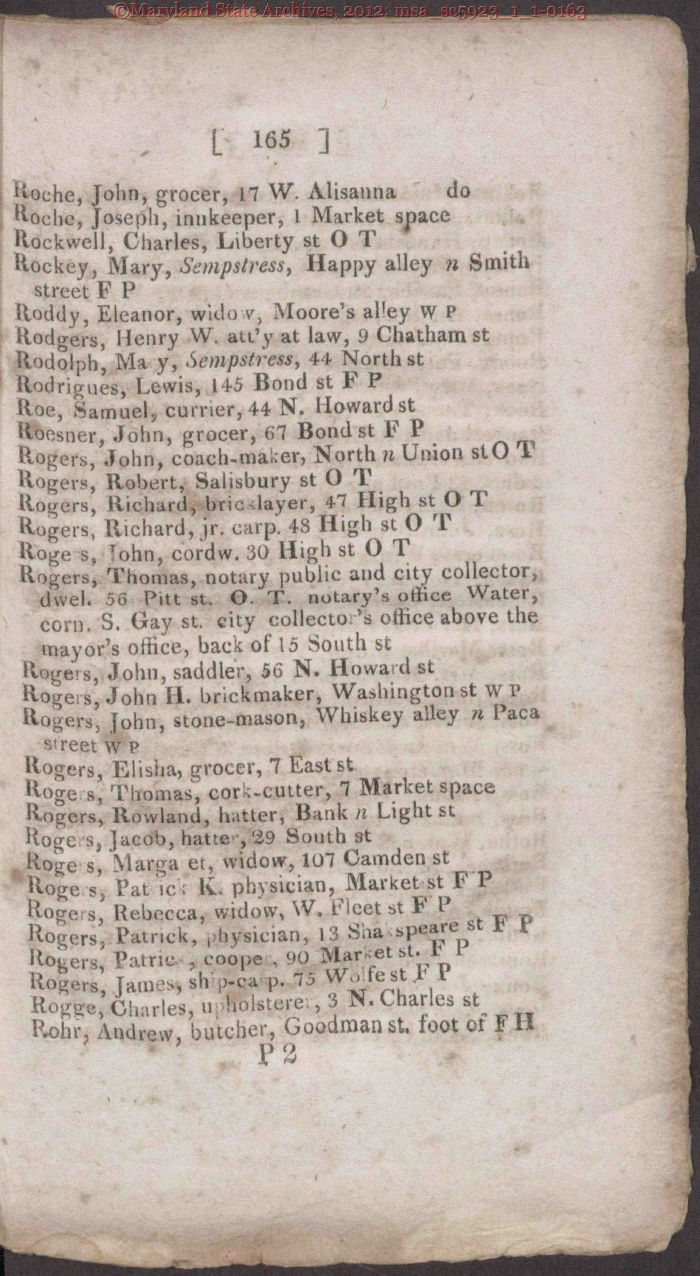 ©Maryland State Archives, 2012: msa_sc5923_1_1-0163
[ 165 ]
Roche, John, grocer, 17 W. Alisanna do
Roche, Joseph, innkeeper, 1 Market space
Rockwell, Charles, Liberty st O T
Rockey, Mary, Sempstress, Happy alley n Smith
street F P
Roddy, Eleanor, widow, Moore's alley W P
Rodgers, Henry W. att'y at law, 9 Chatham st
Rodolph, Ma y, Sempstress, 44 North st
Rodrigues, Lewis, 145 Bond st F P
Roe, Samuel, currier, 44 N. Howard st
Roesner, John, grocer, 67 Bond st F P
Rogers, John, coach-maker, North n Union st O T
Rogers, Robert, Salisbury st O T
Rogers, Richard, bricklayer, 47 High st O T
Rogers, Richard, jr. carp. 48 High st O T
Roge s, John, cordw. 30 High st O T
Rogers, Thomas, notary public and city collector,
dwel. 56 Pitt st. O. T. notary's office Water,
corn. S. Gay st. city collector's office above the
mayor's office, back of 15 South st
Rogers, John, saddler, 56 N. Howard st
Rogers, John H. brickmaker, Washington st W P
Rogers, John, stone-mason, Whiskey alley n Paca
street W P
Rogers, Elisha, grocer, 7 East st
Rogers, Thomas, cork-cutter, 7 Market space
Rogers, Rowland, hatter, Bank n Light st
Rogers, Jacob, hatter, 29 South st
Roge s, Marga et, widow, 107 Camden st
Roge s, Pat ick K. physician, Market st F P
Rogers, Rebecca, widow, W. Fleet st F P
Rogers, Patrick, physician, 13 Shakspeare st F P
Rogers, Patrick, cooper, 90 Market st. F P
Rogers, James, ship-carp. 75 Wolfe st F P
Rogge, Charles, upholsterer, 3 N. Charles st
Rohr, Andrew, butcher, Goodman st. foot of F H
P 2